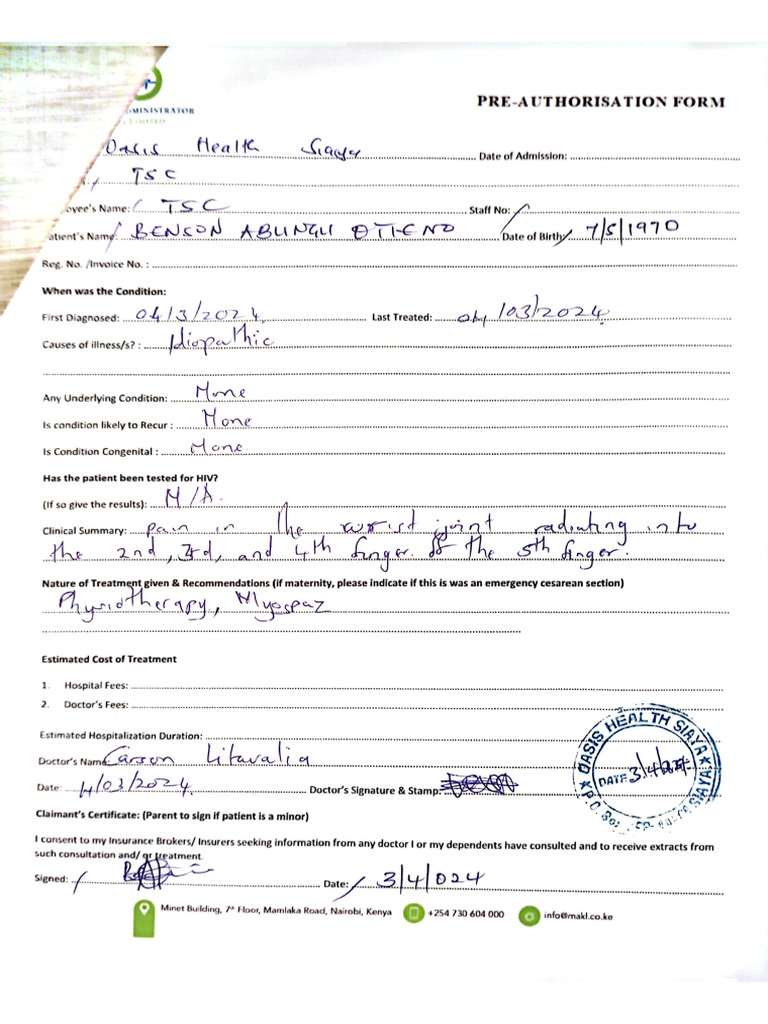 MINISTRATOR
LIMITED
PRE-AUTHORISATION FORM
Oasis Health Siaya Date of Admission:
TSC
oyee's Name: TSC Staff No:
atient's Name: BENSON ABUNGU OTIENO Date of Birth: 7/5/1970
Reg. No. /Invoice No. :
When was the Condition:
First Diagnosed: 04/3/2024 Last Treated: 04/03/2024
Causes of illness/s? : Idiopathic
Any Underlying Condition: None
Is condition likely to Recur : None
Is Condition Congenital : None
Has the patient been tested for HIV?
(If so give the results): N/A.
Clinical Summary: pain in the wrist joint radiating into
the 2nd, 3rd, and 4th finger. of the 5th finger.
Nature of Treatment given & Recommendations (if maternity, please indicate if this is was an emergency cesarean section)
Physiotherapy, Myospaz
Estimated Cost of Treatment
1. Hospital Fees:
2. Doctor's Fees:
Estimated Hospitalization Duration:
Doctor's Name: Carson Litavalia
Date: 4/03/2024 Doctor's Signature & Stamp:
OASIS HEALTH SIAYA
DATE 3/4/024
P.O. Box SIAYA
Claimant's Certificate: (Parent to sign if patient is a minor)
I consent to my Insurance Brokers/ Insurers seeking information from any doctor I or my dependents have consulted and to receive extracts from
such consultation and/ or treatment.
Signed: Date: 3/4/024
Minet Building, 7th Floor, Mamlaka Road, Nairobi, Kenya +254 730 604 000 info@makl.co.ke